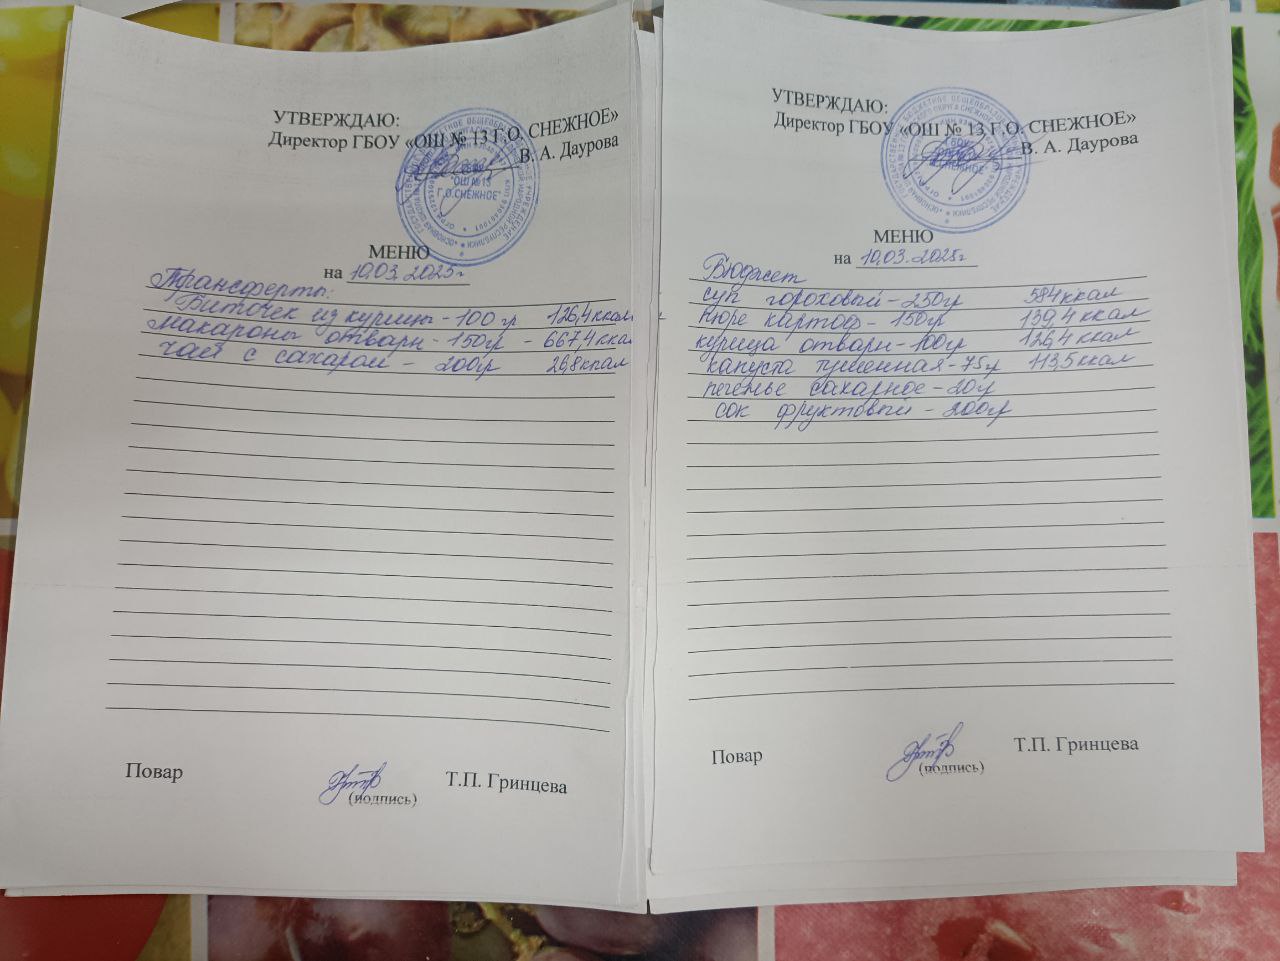 УТВЕРЖДАЮ:
Директор ГБОУ «ОШ № 13 Г.О. СНЕЖНОЕ»
В. А. Даурова
ОШ №13
Г.О.СНЕЖНОЕ"
МЕНЮ
на 10.03.2025г
Трансферты:
Биточек из курицы - 100 гр 126,4 ккал
Макароны отварн - 150гр - 667,4 ккал
Чай с сахаром - 200гр 26,8 ккал
Повар
Т.П. Гринцева
(подпись)
УТВЕРЖДАЮ:
Директор ГБОУ «ОШ № 13 Г.О. СНЕЖНОЕ»
В. А. Даурова
МЕНЮ
на 10.03.2025г
Бюджет
суп гороховый - 250гр 584 ккал
пюре картоф - 150гр 139,4 ккал
курица отварн - 100гр 126,4 ккал
капуста тушенная - 75гр 113,5 ккал
печенье сахарное - 20гр
сок фруктовый - 200гр
Повар
Т.П. Гринцева
(подпись)